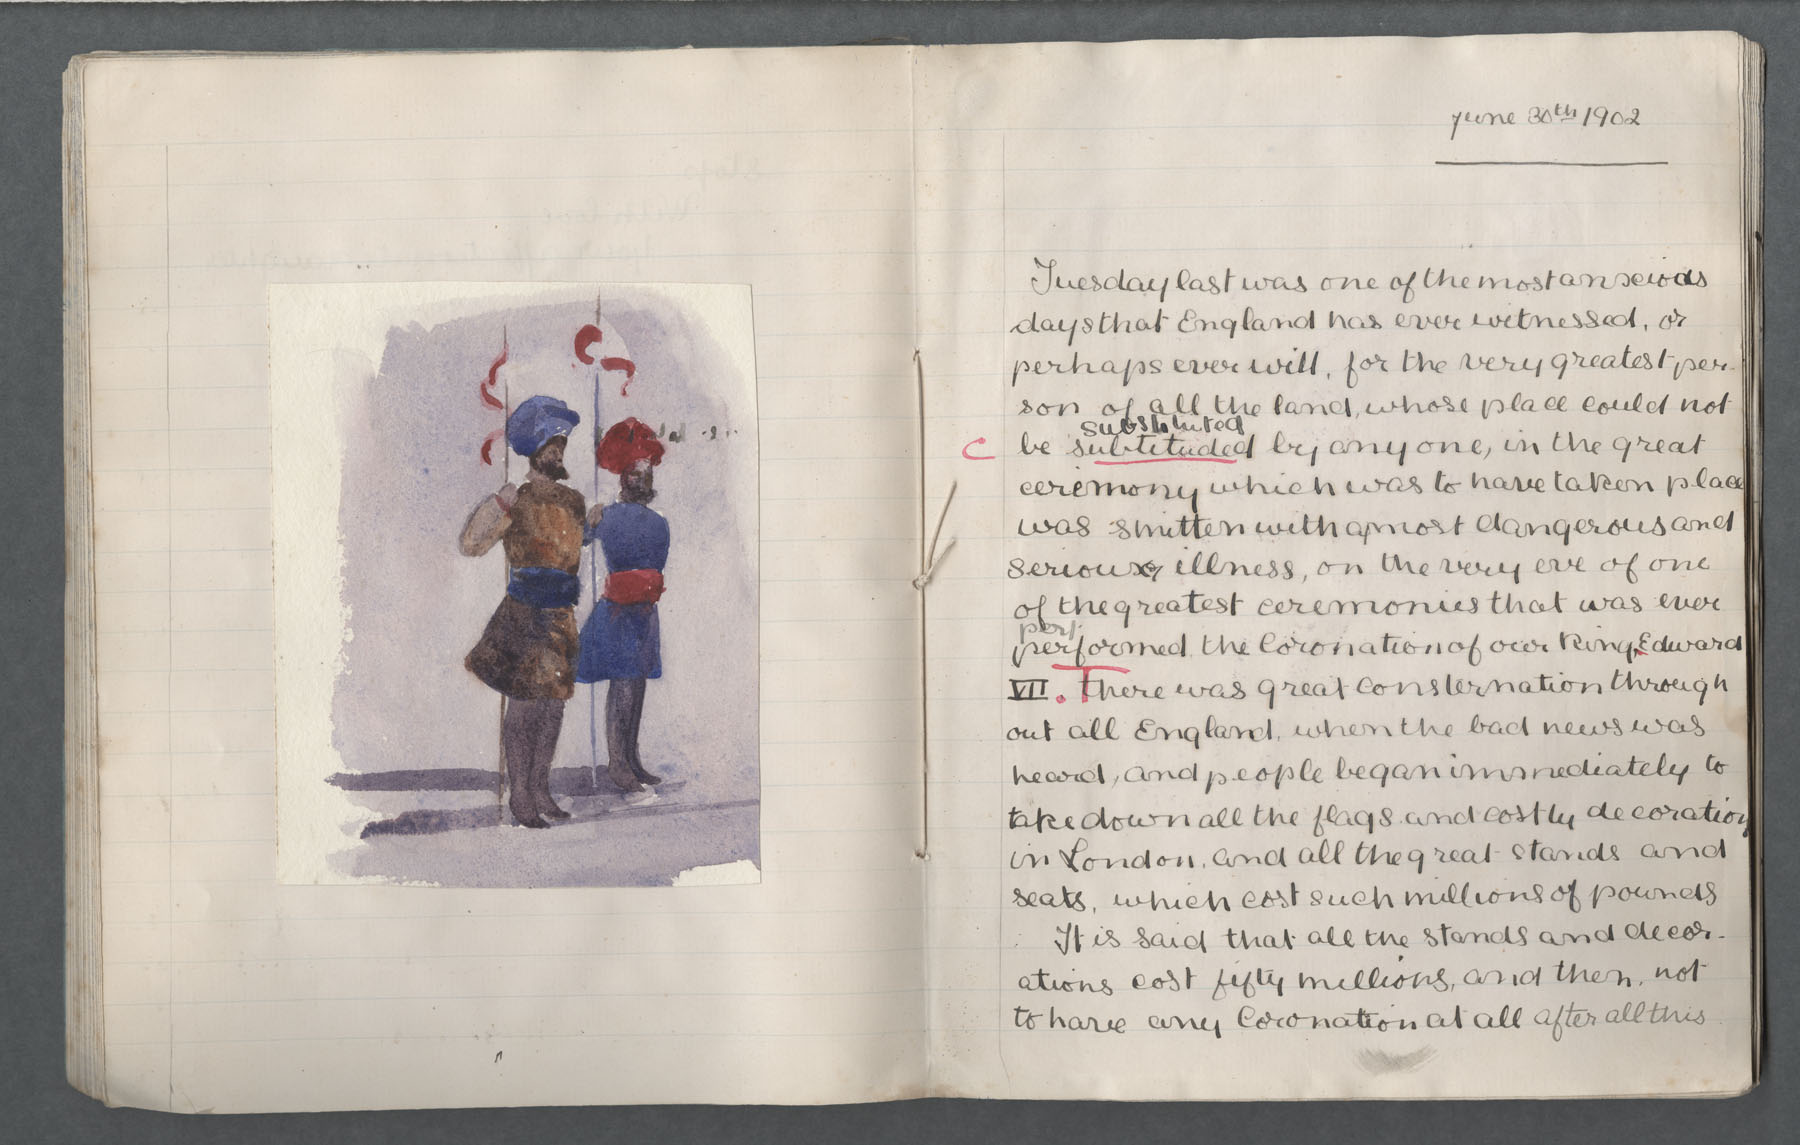 June 30th 1902
Tuesday last was one of the most anxious
days that England has ever witnessed, or
perhaps ever will, for the very greatest per-
son of all the land, whose place could not
substituted
c be subtituded by any one, in the great
ceremony which was to have taken place
was smitten with a most dangerous and
serious illness, on the very eve of one
of the greatest ceremonies that was ever
perf
performed, the Coronation of our King, Edward
VII. There was great consternation through
out all England, when the bad news was
heard, and people began immediately to
take down all the flags and costly decoration
in London, and all the great stands and
seats, which cost such millions of pounds
It is said that all the stands and decor-
ations cost fifty millions, and then, not
to have any Coronation at all after all this